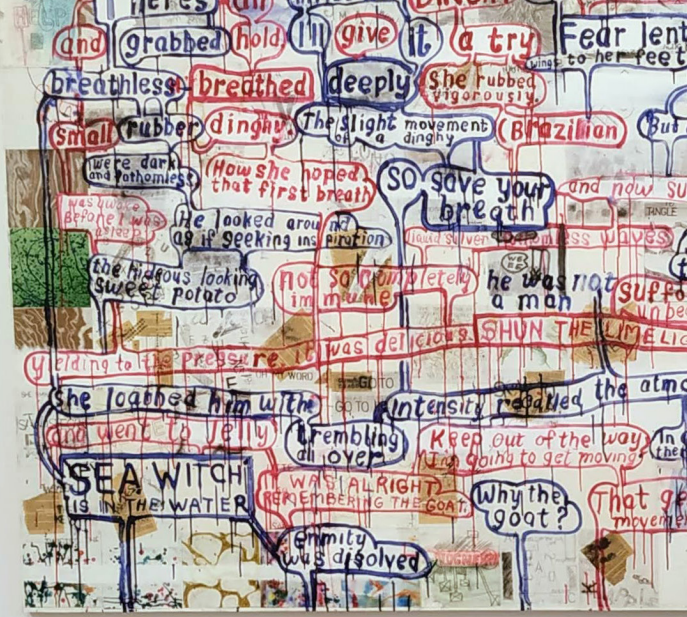 and
grabbed
hold
I'll
give
it
a try
Fear lent
wings to her feet
breathless
breathed
deeply
She rubbed
vigorously.
small
rubber
dinghy.
The slight movement
of a dinghy
Brazilian
But
were dark
and fathomless
How she hoped
that first breath
SO, save your
breath
and now su
was awake
Before he was
asleep
He looked around
as if seeking inspiration
TANGLE
liquid silver bottomless waves
WE
the hideous looking
sweet potato
not so completely
immune
he was not
a man
suffo
un be
yielding to the pressure it was delicious.
SHUN THE LIMELIG
MY WORD
GO TO
GO TO
she loathed him with
intensity recalled the atmo
and went to jelly
trembling
all over
Keep out of the way
I'm going to get moving.
In
SEA WITCH
IS IN THE WATER
WAS ALRIGHT
REMEMBERING THE GOAT.
Why the
goat?
That ge
moveme
Enmity
was disolved